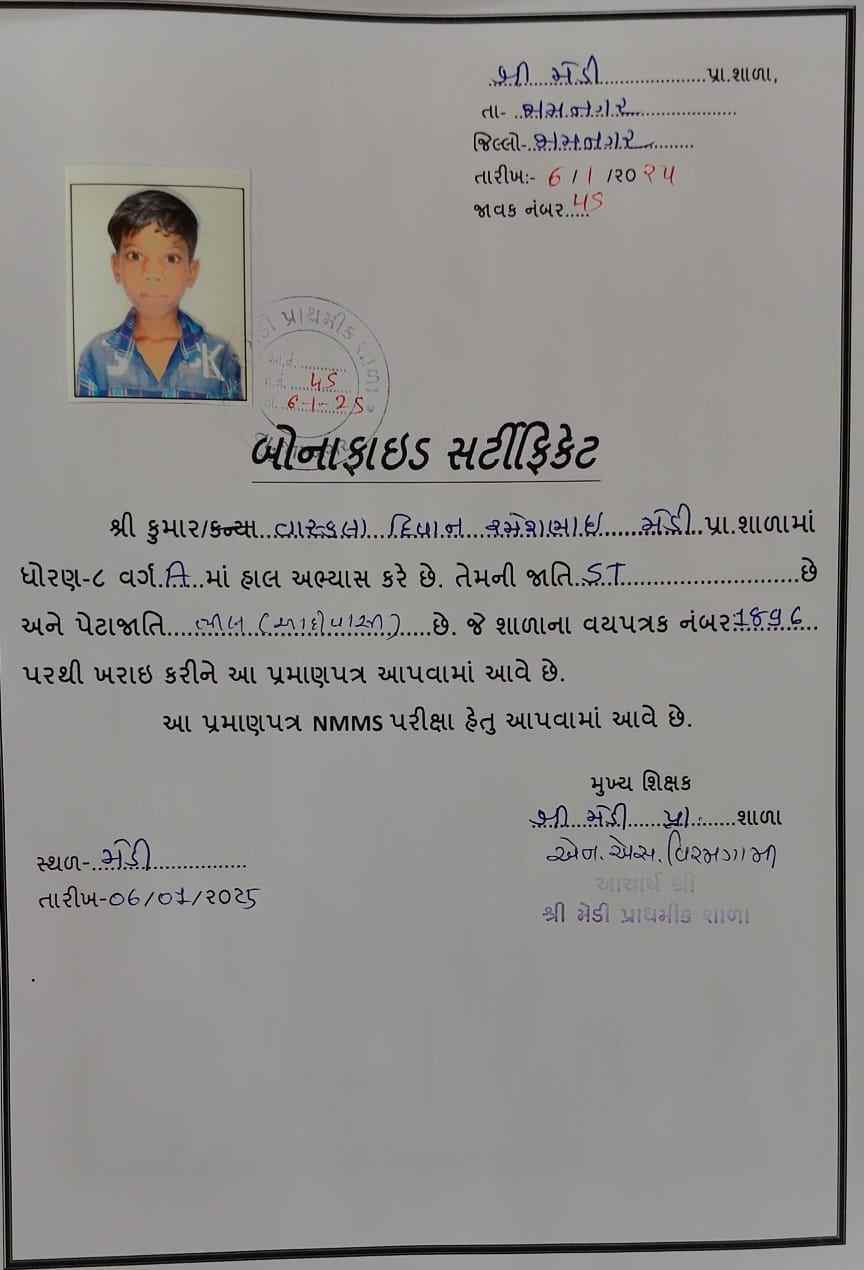 શ્રી મેડી પ્રા.શાળા,
તા- જામનગર
જિલ્લો- જામનગર
તારીખ:- 6/1/૨૦૨૫
જાવક નંબર..... 45
મેડી પ્રાથમીક શાળા
45
6-1-25
બોનાફાઇડ સર્ટીફિકેટ
શ્રી કુમાર/કન્યા..વાસ્કલા..દિવાન..રમેશભાઇ......મેડી..પ્રા.શાળામાં
ધોરણ-૮ વર્ગ.....માં હાલ અભ્યાસ કરે છે. તેમની જાતિ..ST....................છે
અને પેટાજાતિ....ભીલ (આદીવાસી).....છે. જે શાળાના વયપત્રક નંબર 1896...
પરથી ખરાઇ કરીને આ પ્રમાણપત્ર આપવામાં આવે છે.
આ પ્રમાણપત્ર NMMS પરીક્ષા હેતુ આપવામાં આવે છે.
મુખ્ય શિક્ષક
શ્રી મેડી પ્રા. શાળા
એન.એસ.વિરમગામી
આચાર્ય શ્રી
શ્રી મેડી પ્રાથમીક શાળા
સ્થળ-..મેડી................
તારીખ-06/01/૨૦૨5